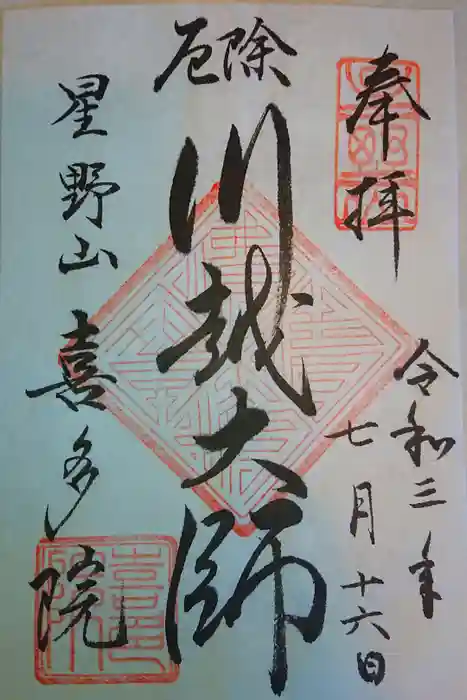 奉拝
令和三年
七月十六日
除厄
川越大師
星野山
喜多院